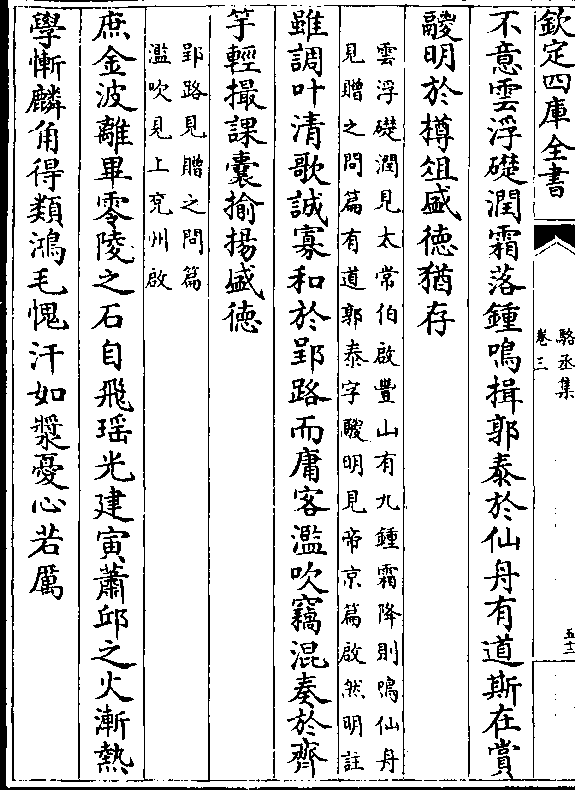 欽定四庫全書
駱丞集
卷三
五十一
不意雲浮礎潤霜落鍾鳴揖郭泰於仙舟有道斯在賞
鬷明於樽俎盛德猶存
雲浮礎潤見太常伯啟豐山有九鍾霜降則鳴仙舟
見贈之問篇有道郭泰字鬷明見帝京篇啟然明註
雖調叶清歌誠寡和於郢路而庸客濫吹竊混奏於齊
竽輕撮課囊揄揚盛徳
郢路見贈之問篇
濫吹見上兖州啟
庶金波離畢零陵之石自飛瑶光建寅蕭邱之火漸熱
學慚麟角得類鴻毛愧汗如漿憂心若厲